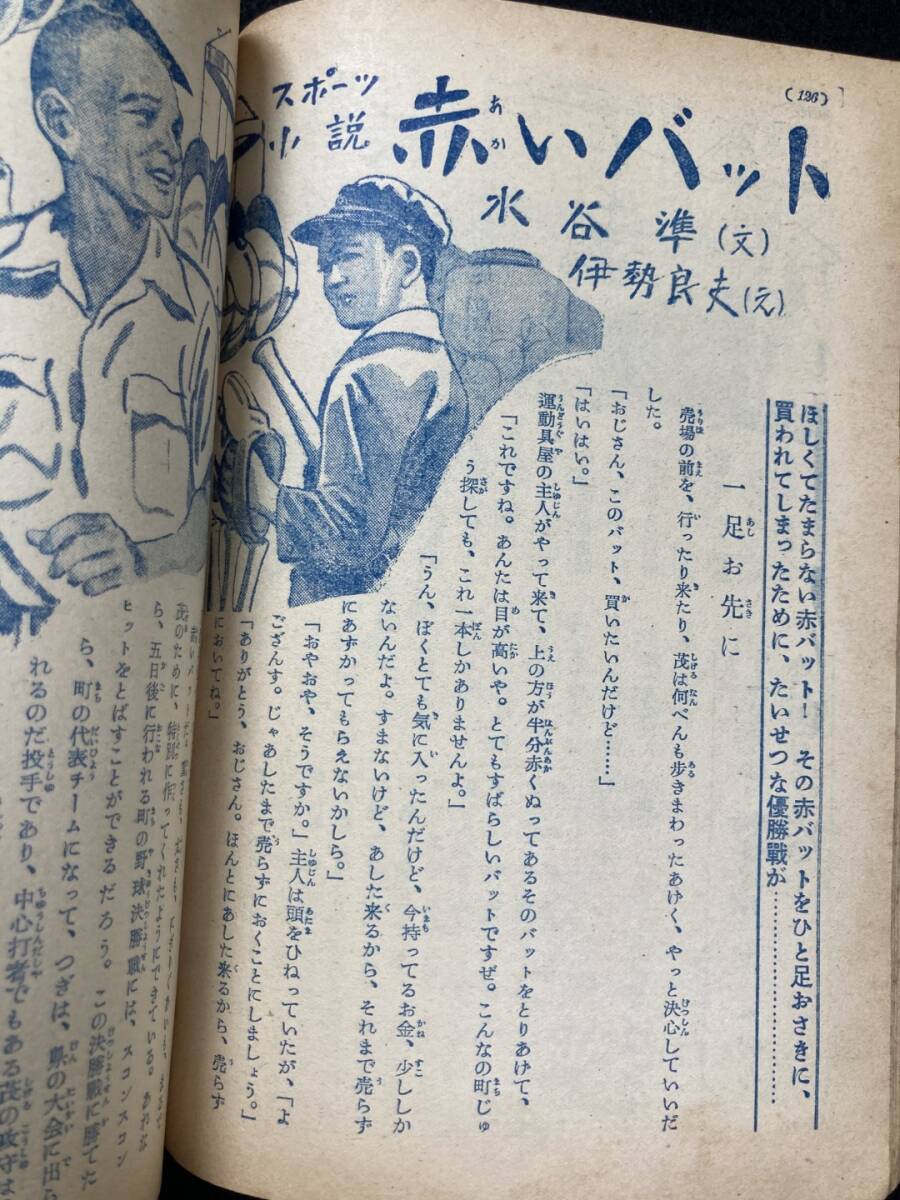 (126)
スポーツ
小説
赤いバット
水谷準(文)
伊勢良夫(え)
ほしくてたまらない赤バット! その赤バットをひと足おさきに、
買われてしまったために、たいせつな優勝戰が…………………
一足お先に
売場の前を、行ったり来たり、茂は何べんも歩きまわったあけく、やっと決心していいだ
した。
「おじさん、このバット、買いたいんだけど……」
「はいはい。」
運動具屋の主人がやって来て、上の方が半分赤くぬってあるそのバットをとりあけて、
「これですね。あんたは目が高いや。とてもすばらしいバットですぜ。こんなの町じゅ
う探しても、これ一本しかありませんよ。」
「うん、ぼくとても気に入ったんだけど、今持ってるお金、少ししか
ないんだよ。すまないけど、あした来るから、それまで売らず
にあずかってもらえないかしら。」
「おやおや、そうですか。」主人は頭をひねっていたが、「よ
ござんす。じゃあしたまで売らずにおくことにしましょう。」
「ありがとう、おじさん。ほんとにあした来るから、売らず
においてね。」
茂のために、特別に作ってくれたようにできている。
ら、五日後に行われる町の野球決勝戰には、スコンスコン
ヒットをとばすことができるだろう。この決勝戰に勝てた
ら、町の代表チームになって、つぎは、県の大会に出ら
れるのだ
投手であり、中心打者でもある茂の攻守は